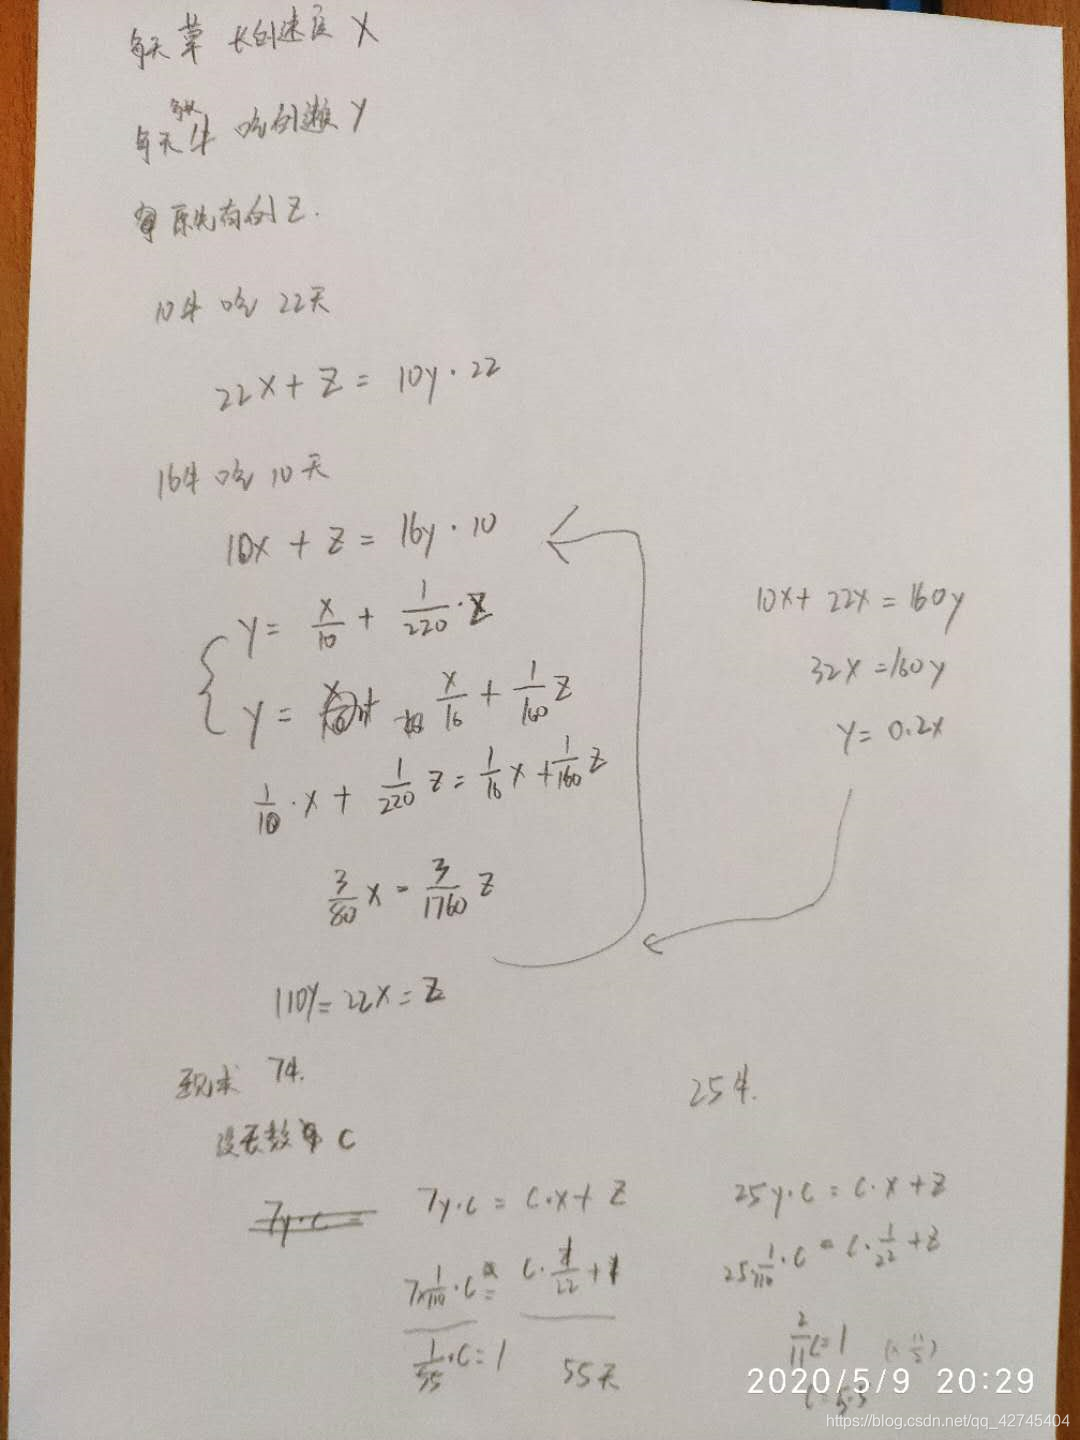 每天草 长的速度 X
每头
每天牛 吃的速度 Y
原先有的 Z.
10牛 吃 22天
22X + Z = 10y · 22
16牛 吃 10天
10x + Z = 16y · 10
y = x/10 + 1/220 · Z
y = x/16 + 1/160 Z
1/10 · x + 1/220 Z = 1/16 x + 1/160 Z
3/80 x = 3/1760 Z
110Y = 22X = Z
10X + 22X = 160y
32X = 160y
y = 0.2x
现求 7牛.
设天数为 C
7y·c =
7y·c = c·x + Z
7×1/110 · c = c · 1/22 + 1
1/55 · c = 1 55天
25牛.
25y·c = c·x + Z
25×1/110 · c = c · 1/22 + Z
2/11 c = 1 (× 11/2)
c = 5.5
2020/5/9 20:29
https://blog.csdn.net/qq_42745404